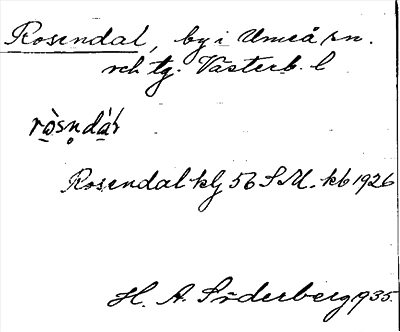 Rosendal, by i Umeå sn.
och tg. Västerb. l
ròsṇdál
Rosendal klj 56 S M. kb 1926
H. A. Söderberg 1935.